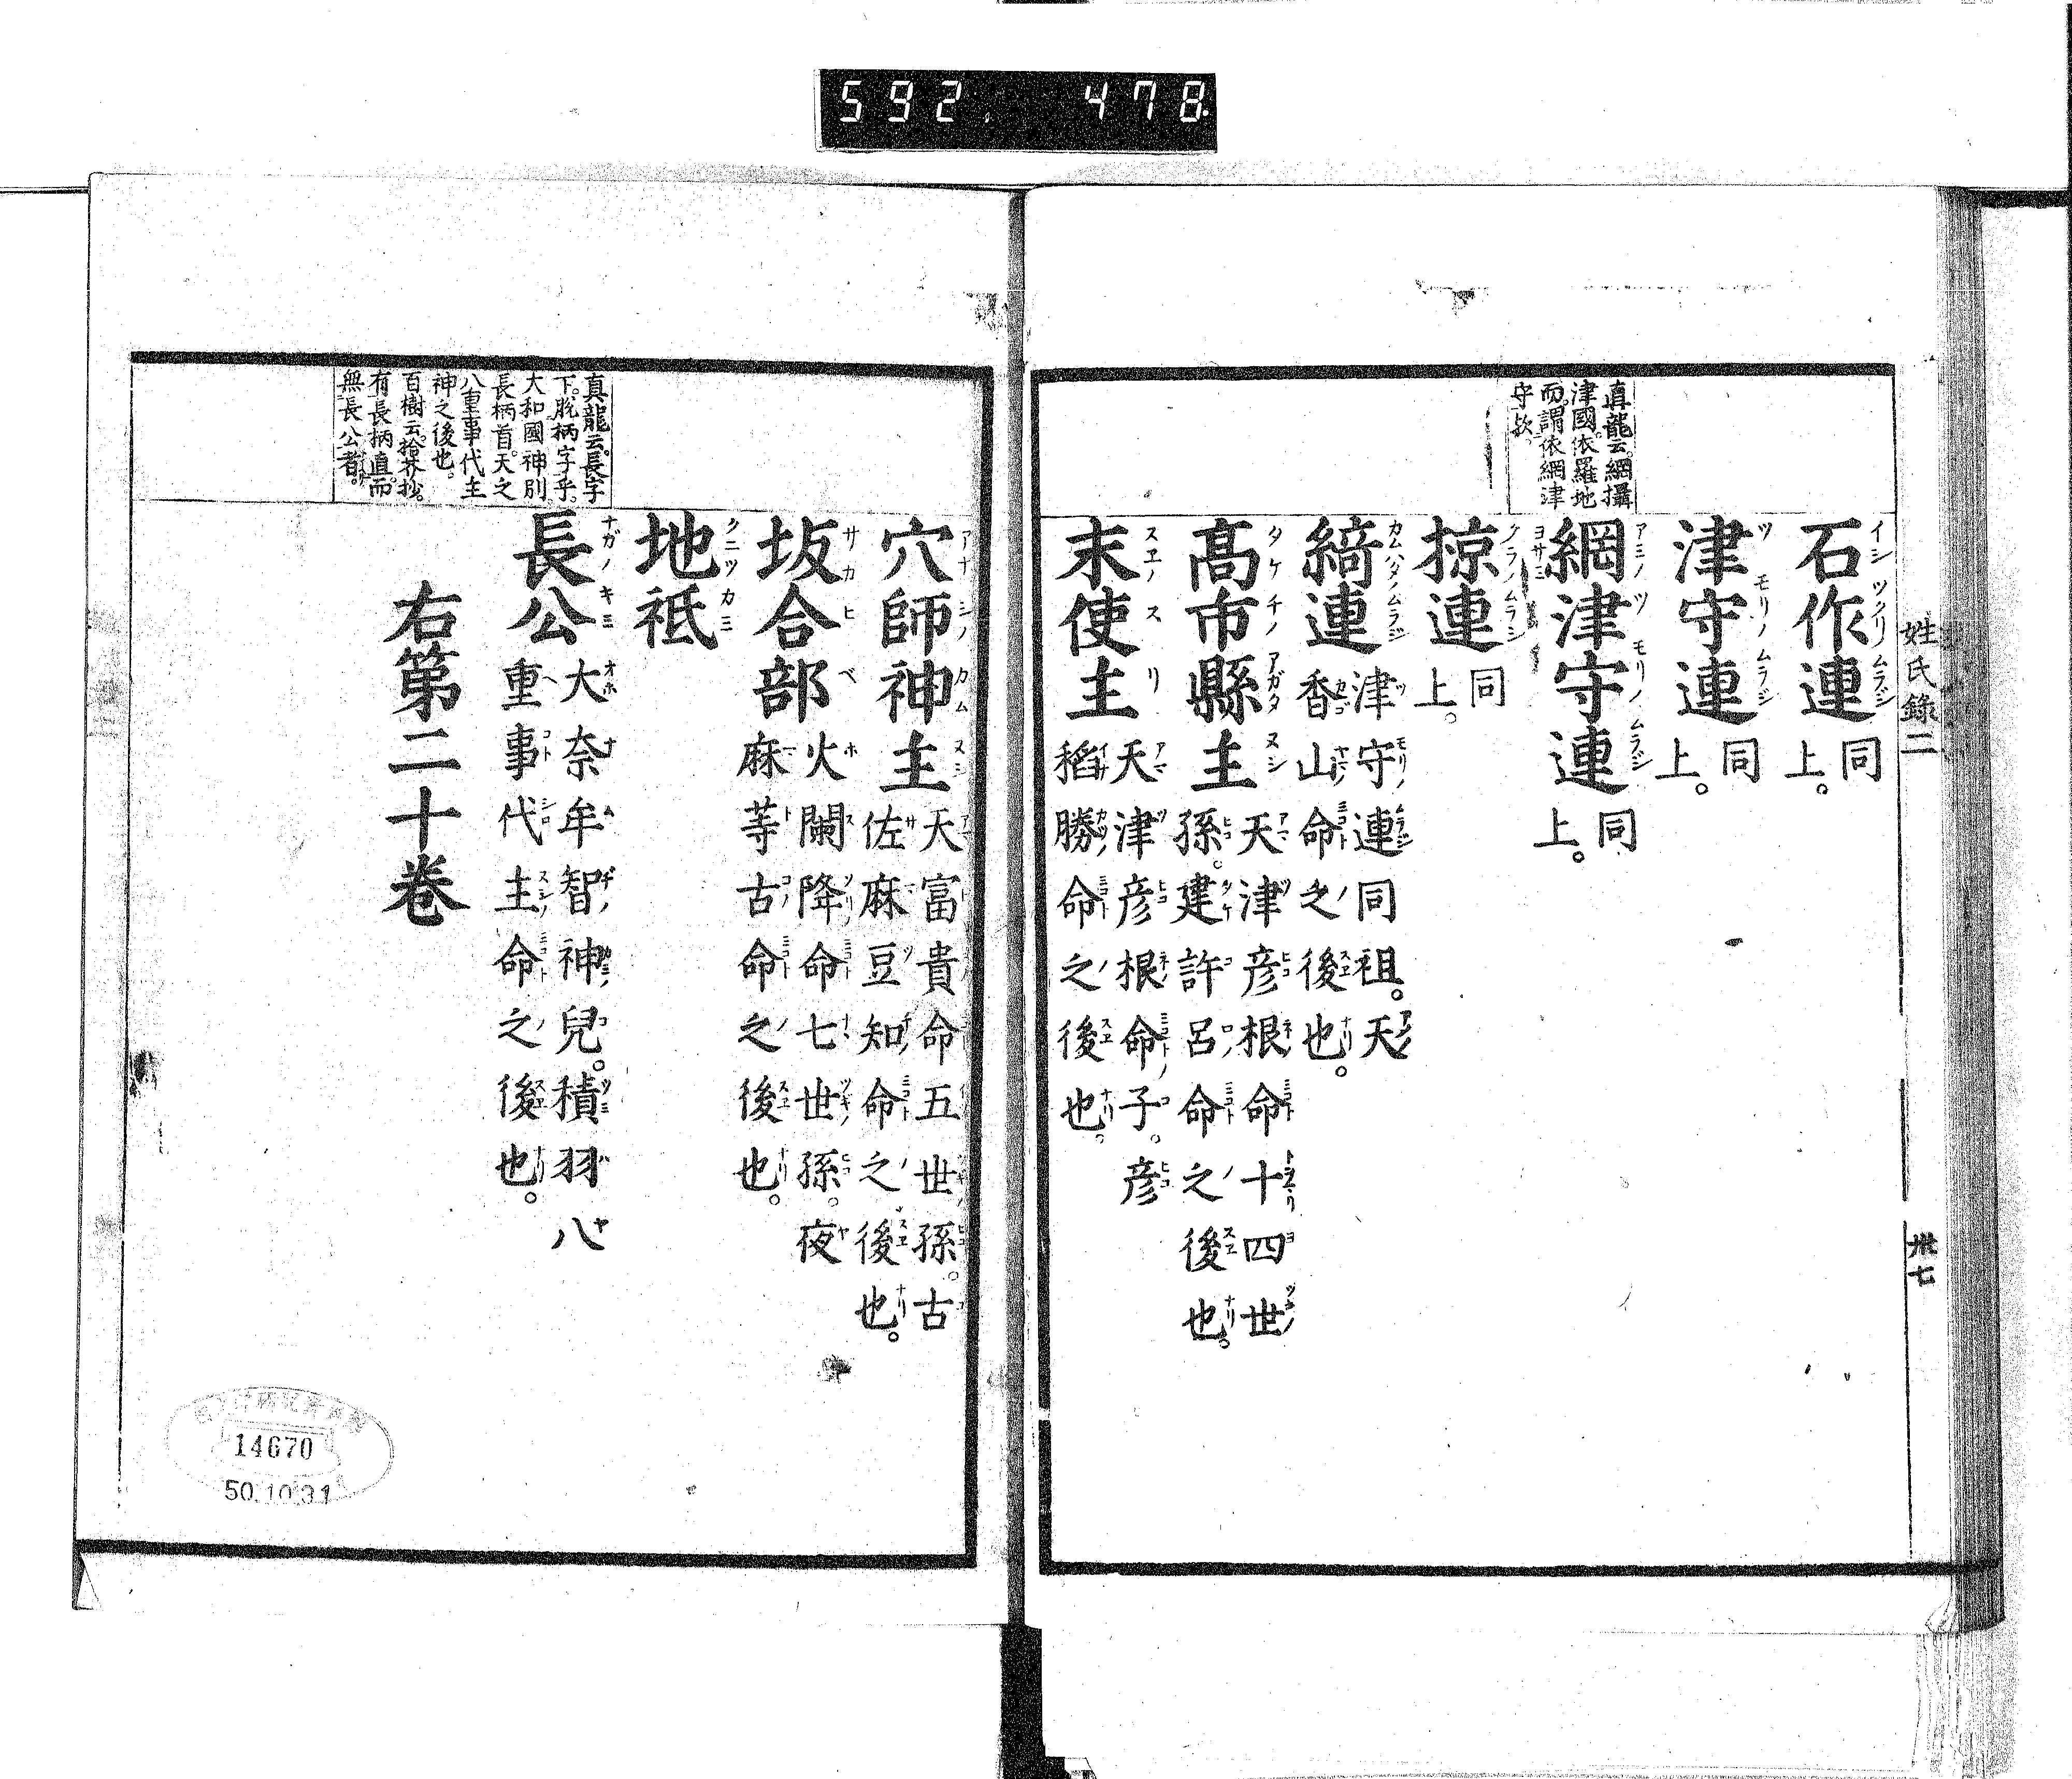 592. 478.
姓氏錄二
卅七
真龍云。網攝
津國。依羅地
而。謂依網津
守歟。
石作連 同上。
津守連 同上。
網津守連 同上。
掠連 同上。
綺連 津守連同祖。天
香山命之後也。
高市縣主 天津彦根命十四世
孫。建許呂命之後也。
末使主 天津彦根命子。彦
稻勝命之後也。
真龍云。長字
下。脫柄字乎。
大和國神別。
長柄首。天之
八重事代主
神之後也。
百樹云。拾芥抄。
有長柄直。而
無長公者。
穴師神主 天富貴命五世孫。古
佐麻豆知命之後也。
坂合部 火闌降命七世孫。夜
麻等古命之後也。
地祇
長公 大奈牟智神兒。積羽八
重事代主命之後也。
右第二十卷
14670
50.10.31